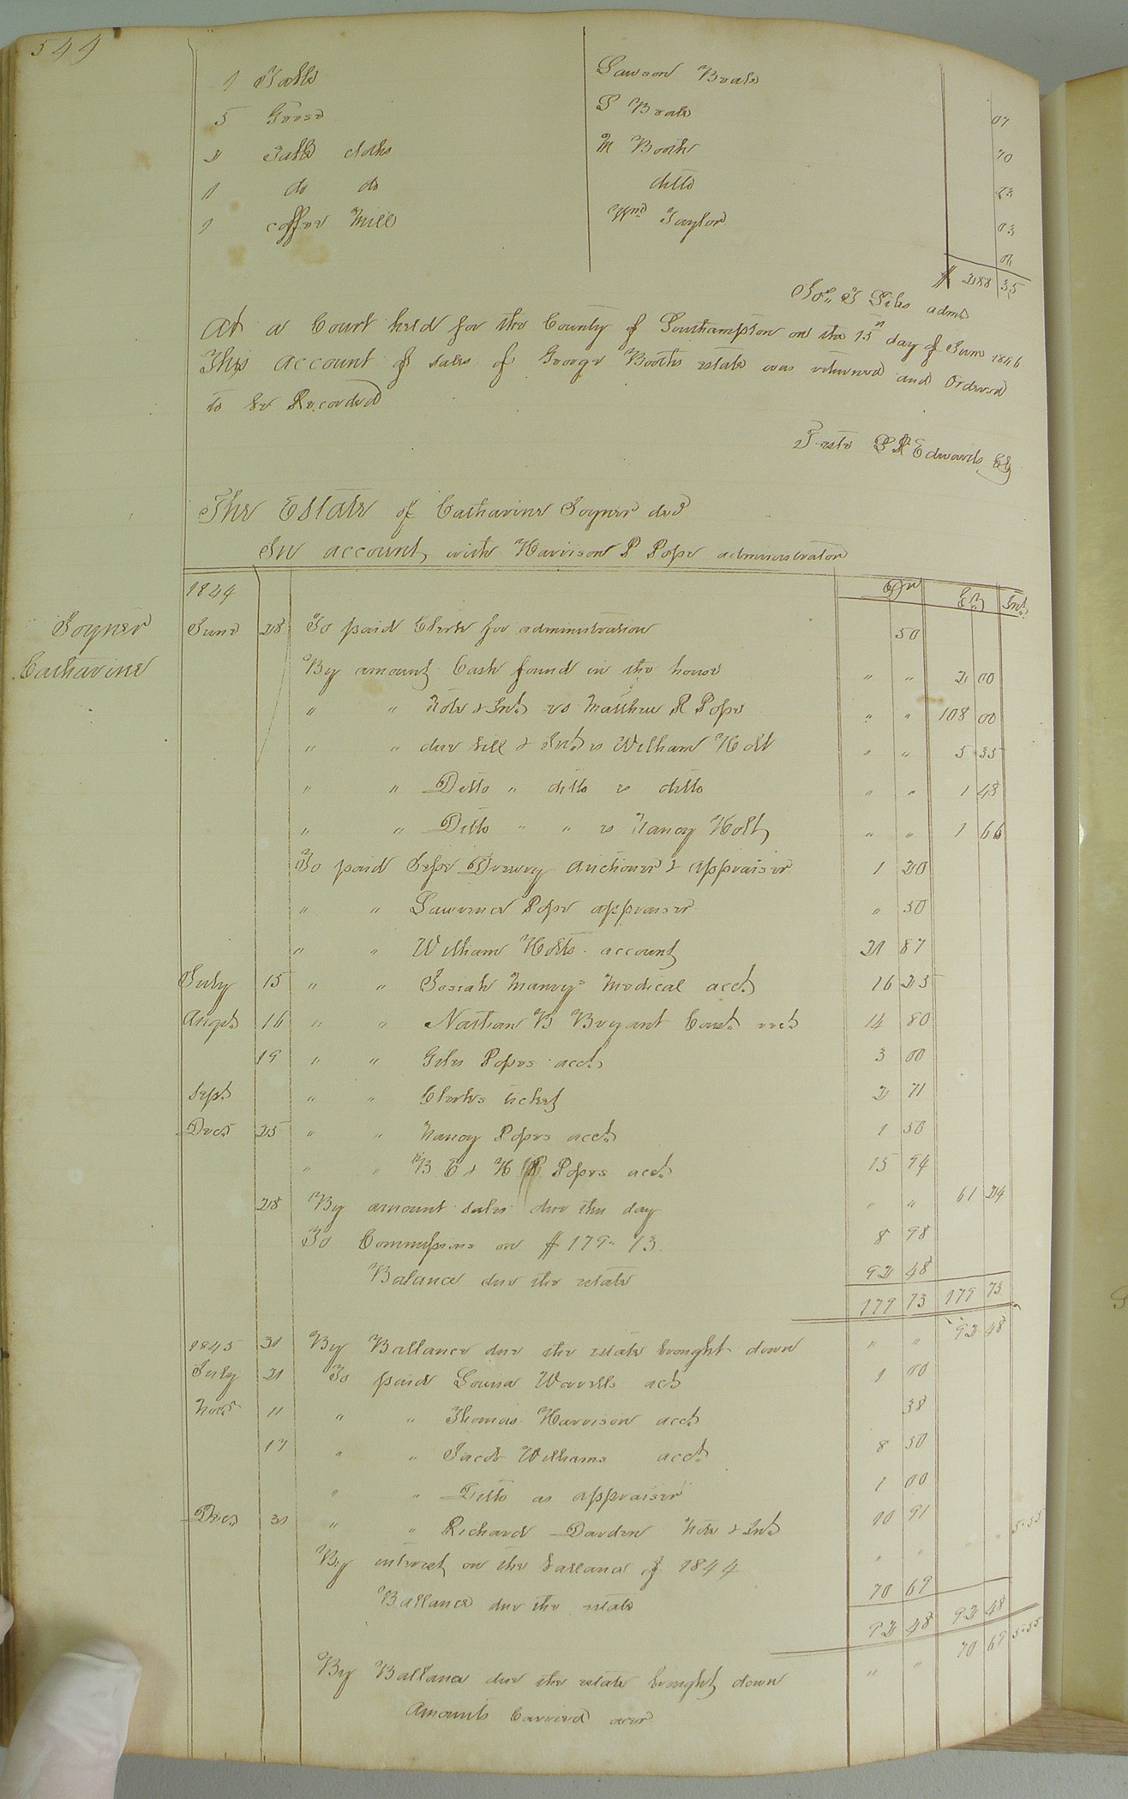 544
1 Table Lawson Beale 07
5 Geese L Beale 70
2 Table cloths M Booth 23
1 do do ditto 03
1 coffee Mill Wm Taylor 06
$ 288 35
adms
At a Court held for the County of Southampton on the 15th day of June 1846
This account of sales of George Booths estate was returned and Ordered
to be Recorded
Teste L R Edwards Clk
The Estate of Catharine Joyner decd
In account with Harrison P Pope administrator
Joyner
Catharine
1844 Dr Cr Int
June 28 To paid Clerk for administration 50
By amount Cash found in the house " " 2 00
" " Note & Int vs Matthew R Pope " " 108 00
" " due bill & Int vs William Holt " " 5 35
" " Ditto " ditto vs ditto " " 1 48
" " Ditto " " vs Nancy Holt " " 1 66
To paid Drewry Auctioner & appraiser 1 20
" " Lawrence Pope appraiser " 50
" " William Holts account 21 87
July 15 " " Josiah Manry Medical acct 16 25
Augst 16 " " Nathan B Bryant acct 14 80
19 " " Giles Popes acct 3 00
Sept " " Clerks ticket 2 71
Decr 25 " " Nancy Popes acct 1 50
" " B E & H P Popes acct 15 94
28 By amount sales due this day " " 61 24
To Commissions on $179.73 8 98
Balance due the estate 92 48
179 73 179 73
1845 By Ballance due the estate brought down " " 92 48
July 21 To paid Worrells act 1 00
Novr 11 " " Thomas Harrison acct 38
17 " " Jacob Williams acct 8 50
" " Ditto as appraiser 1 00
Decr 31 " " Richard Darden Note & Int 10 91
By interest on the ballance of 1844 " " " 5.55
Ballance due the estate 70 69
92 48 92 48
By Ballance due the estate brought down " " 70 69 5.55
Amounts Carried over